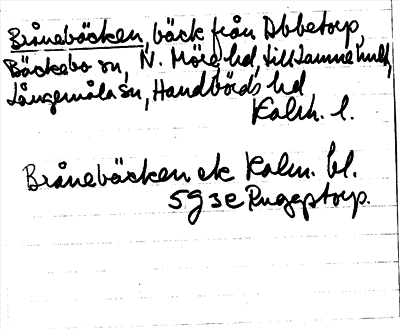 Brånebäcken, bäck från Abbetorp,
Bäckebo sn, N. Möre hd, till Lamnehult,
Långemåla sn, Handbörds hd
Kalm. l.
Brånebäcken ek Kalm. bl.
5g3e Ruggstorp.